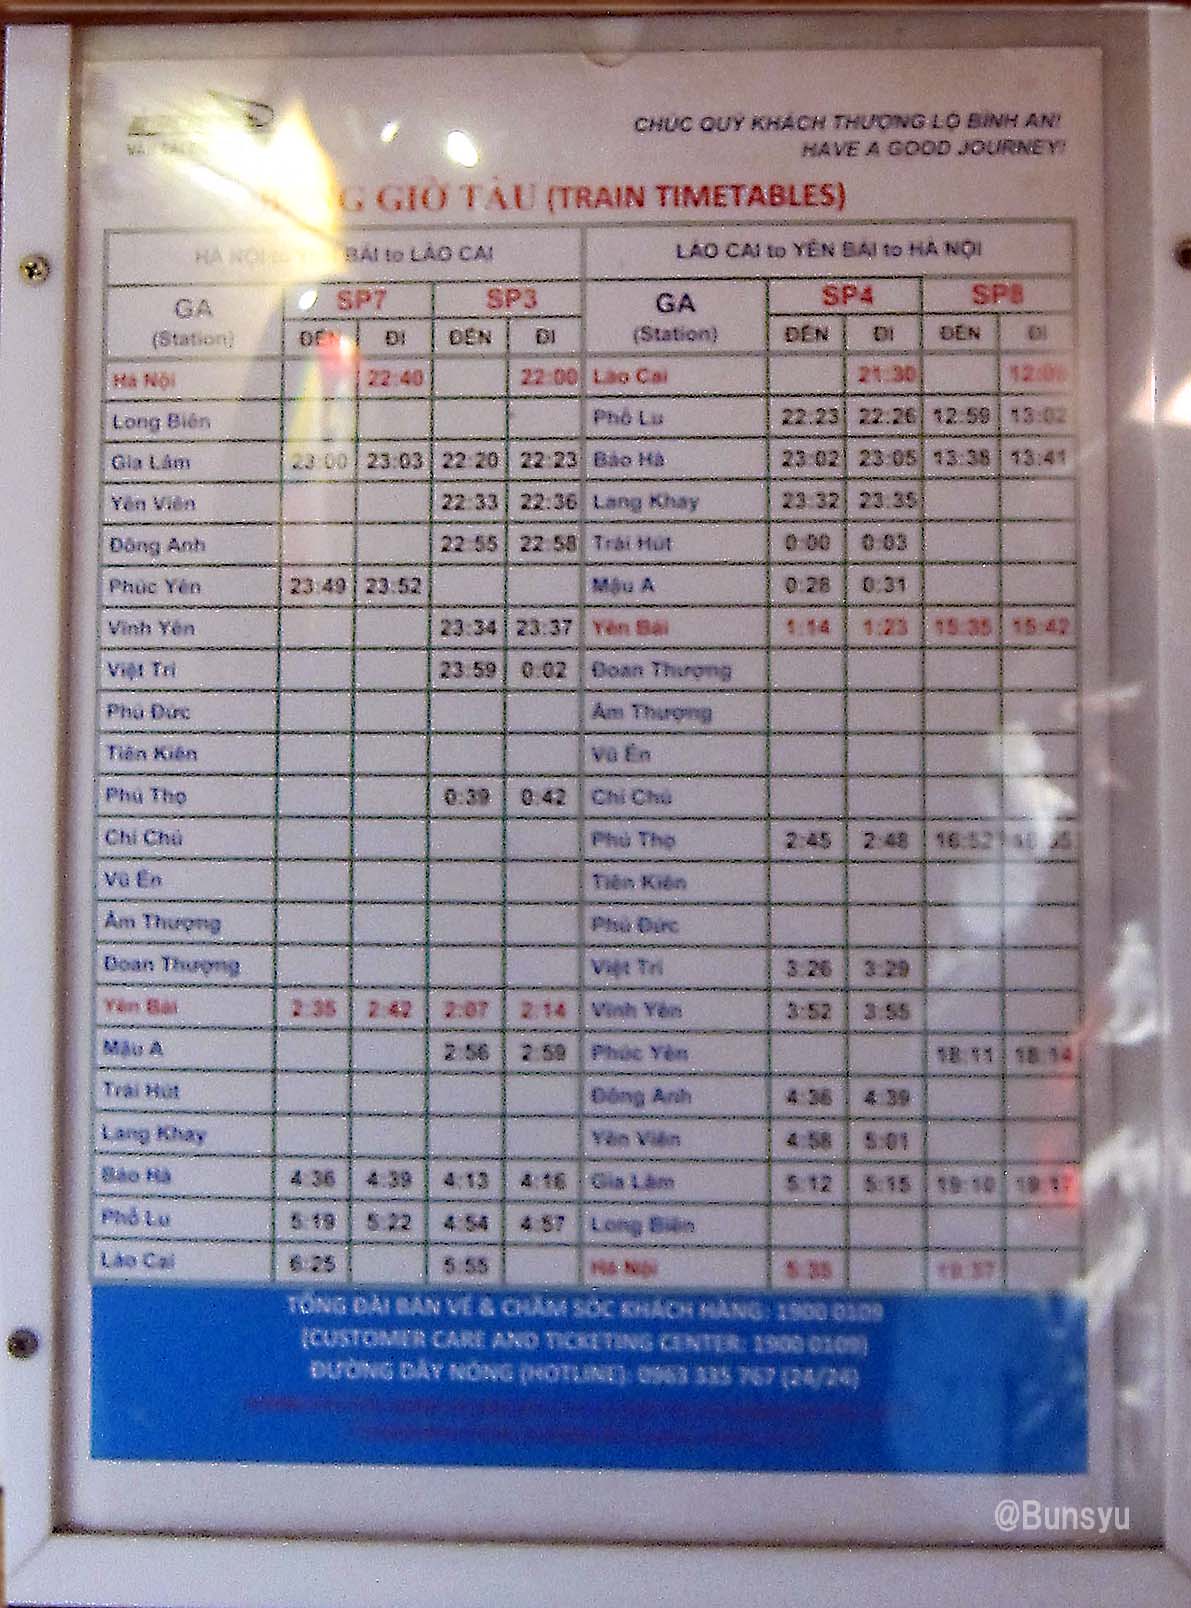 CHÚC QUÝ KHÁCH THƯỢNG LỘ BÌNH AN!
HAVE A GOOD JOURNEY!
GIỜ TÀU (TRAIN TIMETABLES)
HÀ NỘI to BÁI to LÀO CAI LÀO CAI to YÊN BÁI to HÀ NỘI
GA SP7 SP3 GA SP4 SP8
(Station) ĐẾN ĐI ĐẾN ĐI (Station) ĐẾN ĐI ĐẾN ĐI
Hà Nội 22:40 22:00 Lào Cai 21:30
Long Biên Phố Lu 22:23 22:26 12:59 13:02
Gia Lâm 23:00 23:03 22:20 22:23 Bảo Hà 23:02 23:05 13:38 13:41
Yên Viên 22:33 22:36 Lang Khay 23:32 23:35
Đông Anh 22:55 22:58 Trái Hút 0:00 0:03
Phúc Yên 23:49 23:52 Mậu A 0:28 0:31
Vĩnh Yên 23:34 23:37 Yên Bái 1:14 1:23 15:35 15:42
Việt Trì 23:59 0:02 Đoan Thượng
Phủ Đức Ấm Thượng
Tiên Kiên Vũ Ẻn
Phú Thọ 0:39 0:42 Chí Chủ
Chí Chủ Phú Thọ 2:45 2:48 16:52
Vũ Ẻn Tiên Kiên
Ấm Thượng Phủ Đức
Đoan Thượng Việt Trì 3:26 3:29
Yên Bái 2:35 2:42 2:07 2:14 Vĩnh Yên 3:52 3:55
Mậu A 2:56 2:59 Phúc Yên 18:11 18:14
Trái Hút Đông Anh 4:36 4:39
Lang Khay Yên Viên 4:58 5:01
Bảo Hà 4:36 4:39 4:13 4:16 Gia Lâm 5:12 5:15
Phố Lu 5:19 5:22 4:54 4:57 Long Biên
Lào Cai 6:25 5:55 Hà Nội 5:35
TỔNG ĐÀI BÁN VÉ & CHĂM SÓC KHÁCH HÀNG: 1900 0109
(CUSTOMER CARE AND TICKETING CENTER: 1900 0109)
ĐƯỜNG DÂY NÓNG (HOTLINE): 0963 335 767 (24/24)
@Bunsyu